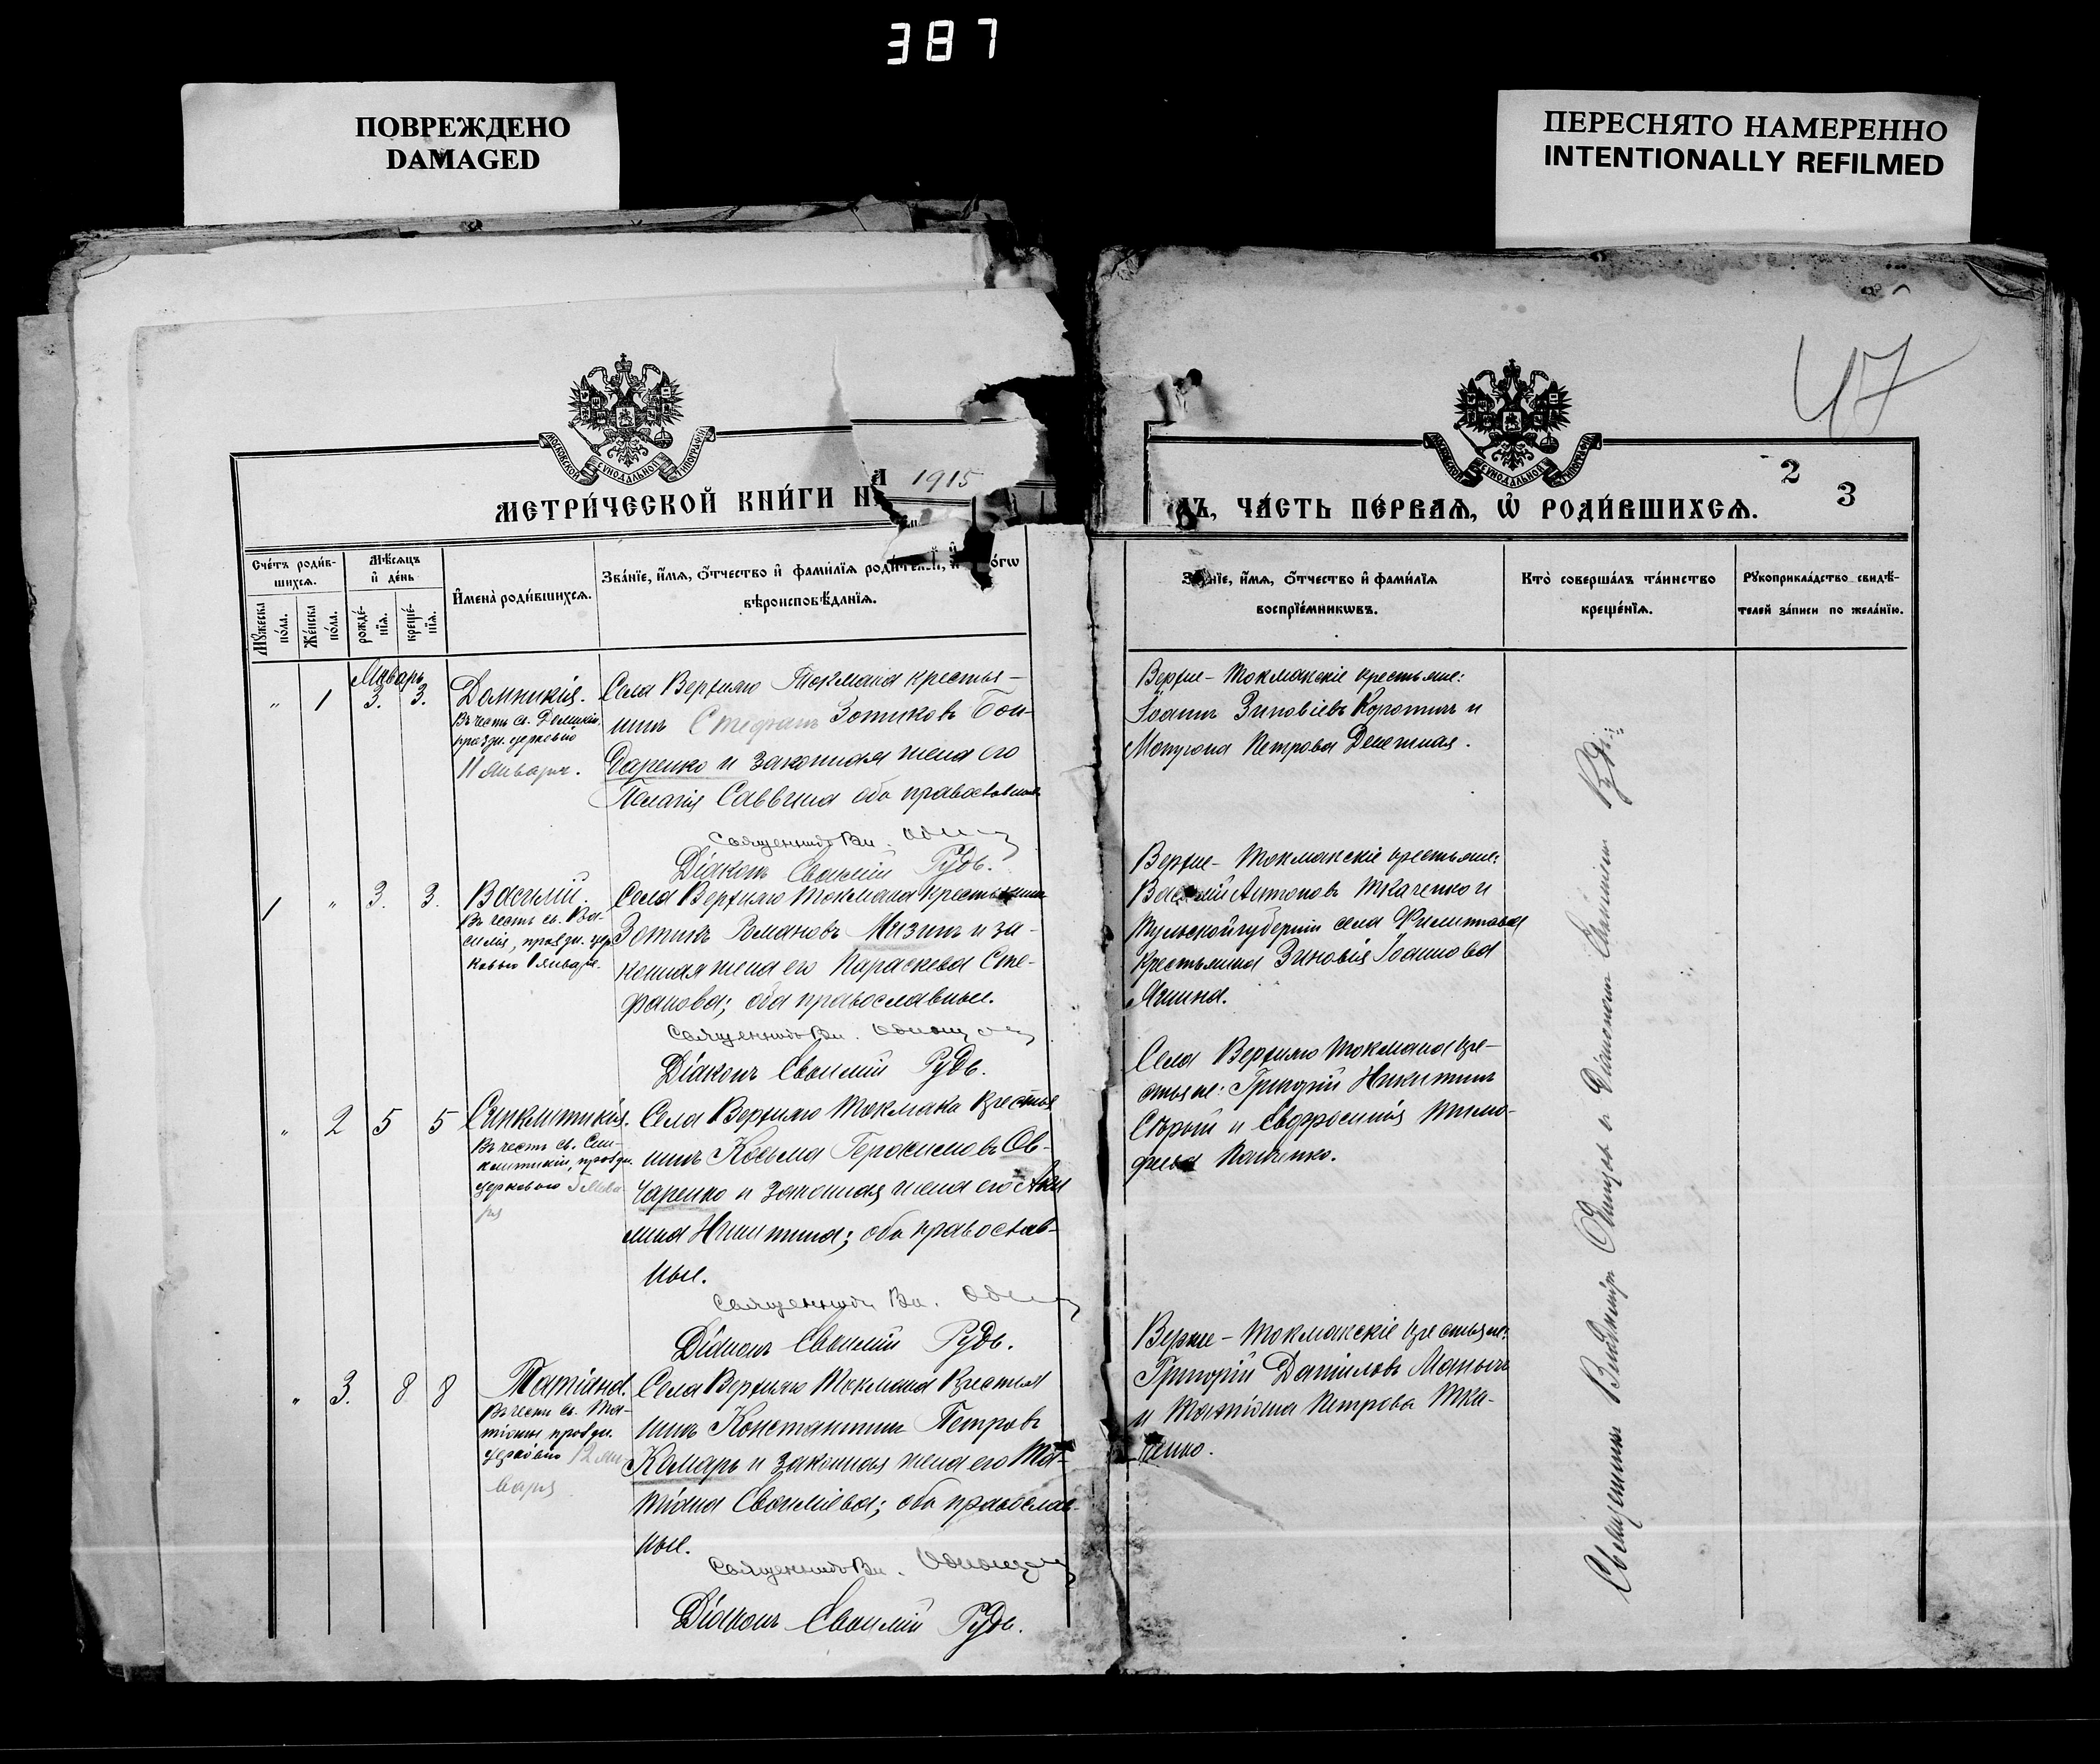 387
ПОВРЕЖДЕНО
DAMAGED
ПЕРЕСНЯТО НАМЕРЕННО
INTENTIONALLY REFILMED
47
МОСКОВСКОЙ СУНОДАЛЬНОЙ ТИПОГРАФІИ
МЕТРИ́ЧЕСКОЙ КНИ́ГИ НА 1915
МОСКОВСКОЙ СУНОДАЛЬНОЙ ТИПОГРАФІИ
2
3
ДЪ, ЧА́СТЬ ПЕ́РВАѦ, Ѽ РОДИ́ВШИХСѦ.
Сче́тъ роди́в-
шихсѧ.
Мѣ́сѧцъ
и҆ де́нь
Мꙋ́жеска
по́ла.
Же́нска
по́ла.
рожде́-
нїѧ.
креще́-
нїѧ.
И҆мена̀ роди́вшихсѧ.
Зва́нїе, и҆́мѧ, ѻ҆́тчество и҆ фами́лїѧ роди́телей, и҆
вѣроисповѣ́данїѧ.
Зва́нїе, и҆́мѧ, ѻ҆́тчество и҆ фами́лїѧ
воспрїе́мникѡвъ.
Кто̀ соверша́лъ та́инство
креще́нїѧ.
Рꙋкоприкла́дство свидѣ́-
телей за́писи по жела́нїю.
Январь
" 1 3. 3.
Домникія.
Въ честь св. Домникіи,
праздн. церковію
11 января.
Села Верхняго Токмака крестья-
нинъ Стефанъ Зотиковъ Бон-
даренко и законная жена его
Пелагія Саввина оба православные
Священникъ Вл.
Діаконъ Евсимій Рудь.
Верхне-Токмакскіе крестьяне:
Іоаннъ Зиновіевъ Коротичъ и
Петрова Денежная.
1 " 3. 3.
Василій.
Въ честь св. Ва-
силія, праздн. цер
ковью 1 января.
Села Верхняго Токмака крестьянинъ
Зотикъ Романовъ Мизинъ и за-
конная жена его Параскева Сте-
фанова; оба православные.
Священникъ Вл.
Діаконъ Евсимій Рудь.
Верхне-Токмакскіе крестьяне:
Василій Антоновъ Ткаченко и
Тульской губерніи села
крестьянка Зиновія Іоаннова
" 2 5 5
Синклитикія.
Въ честь св. Син-
клитикіи, праздн.
церковію 5 янва
ря
Села Верхняго Токмака крестья
нинъ Косьма Герасимовъ Ов-
чаренко и законная жена его Аки
лина Никитина; оба православ-
ные.
Священникъ Вл.
Діаконъ Евсимій Рудь.
Села Верхняго Токмака кре-
стьяне: Григорій Никитинъ
Сѣрый и Евфросинія Тимо-
феева Панченко.
" 3. 8 8
Татіана.
Въ честь св. Та-
тіаны праздн.
церковію 12 ян-
варя
Села Верхняго Токмака крестья
нинъ Константинъ Петровъ
Комарь и законная жена его Та-
тіана Евсиміева; оба православ-
ные.
Священникъ Вл.
Діаконъ Евсимій Рудь.
Верхне-Токмакскіе крестьяне:
Григорій Даніиловъ
и Татіана Петрова Тка-
ченко.
Священникъ Владиміръ и Діаконъ Евсимій Рудь